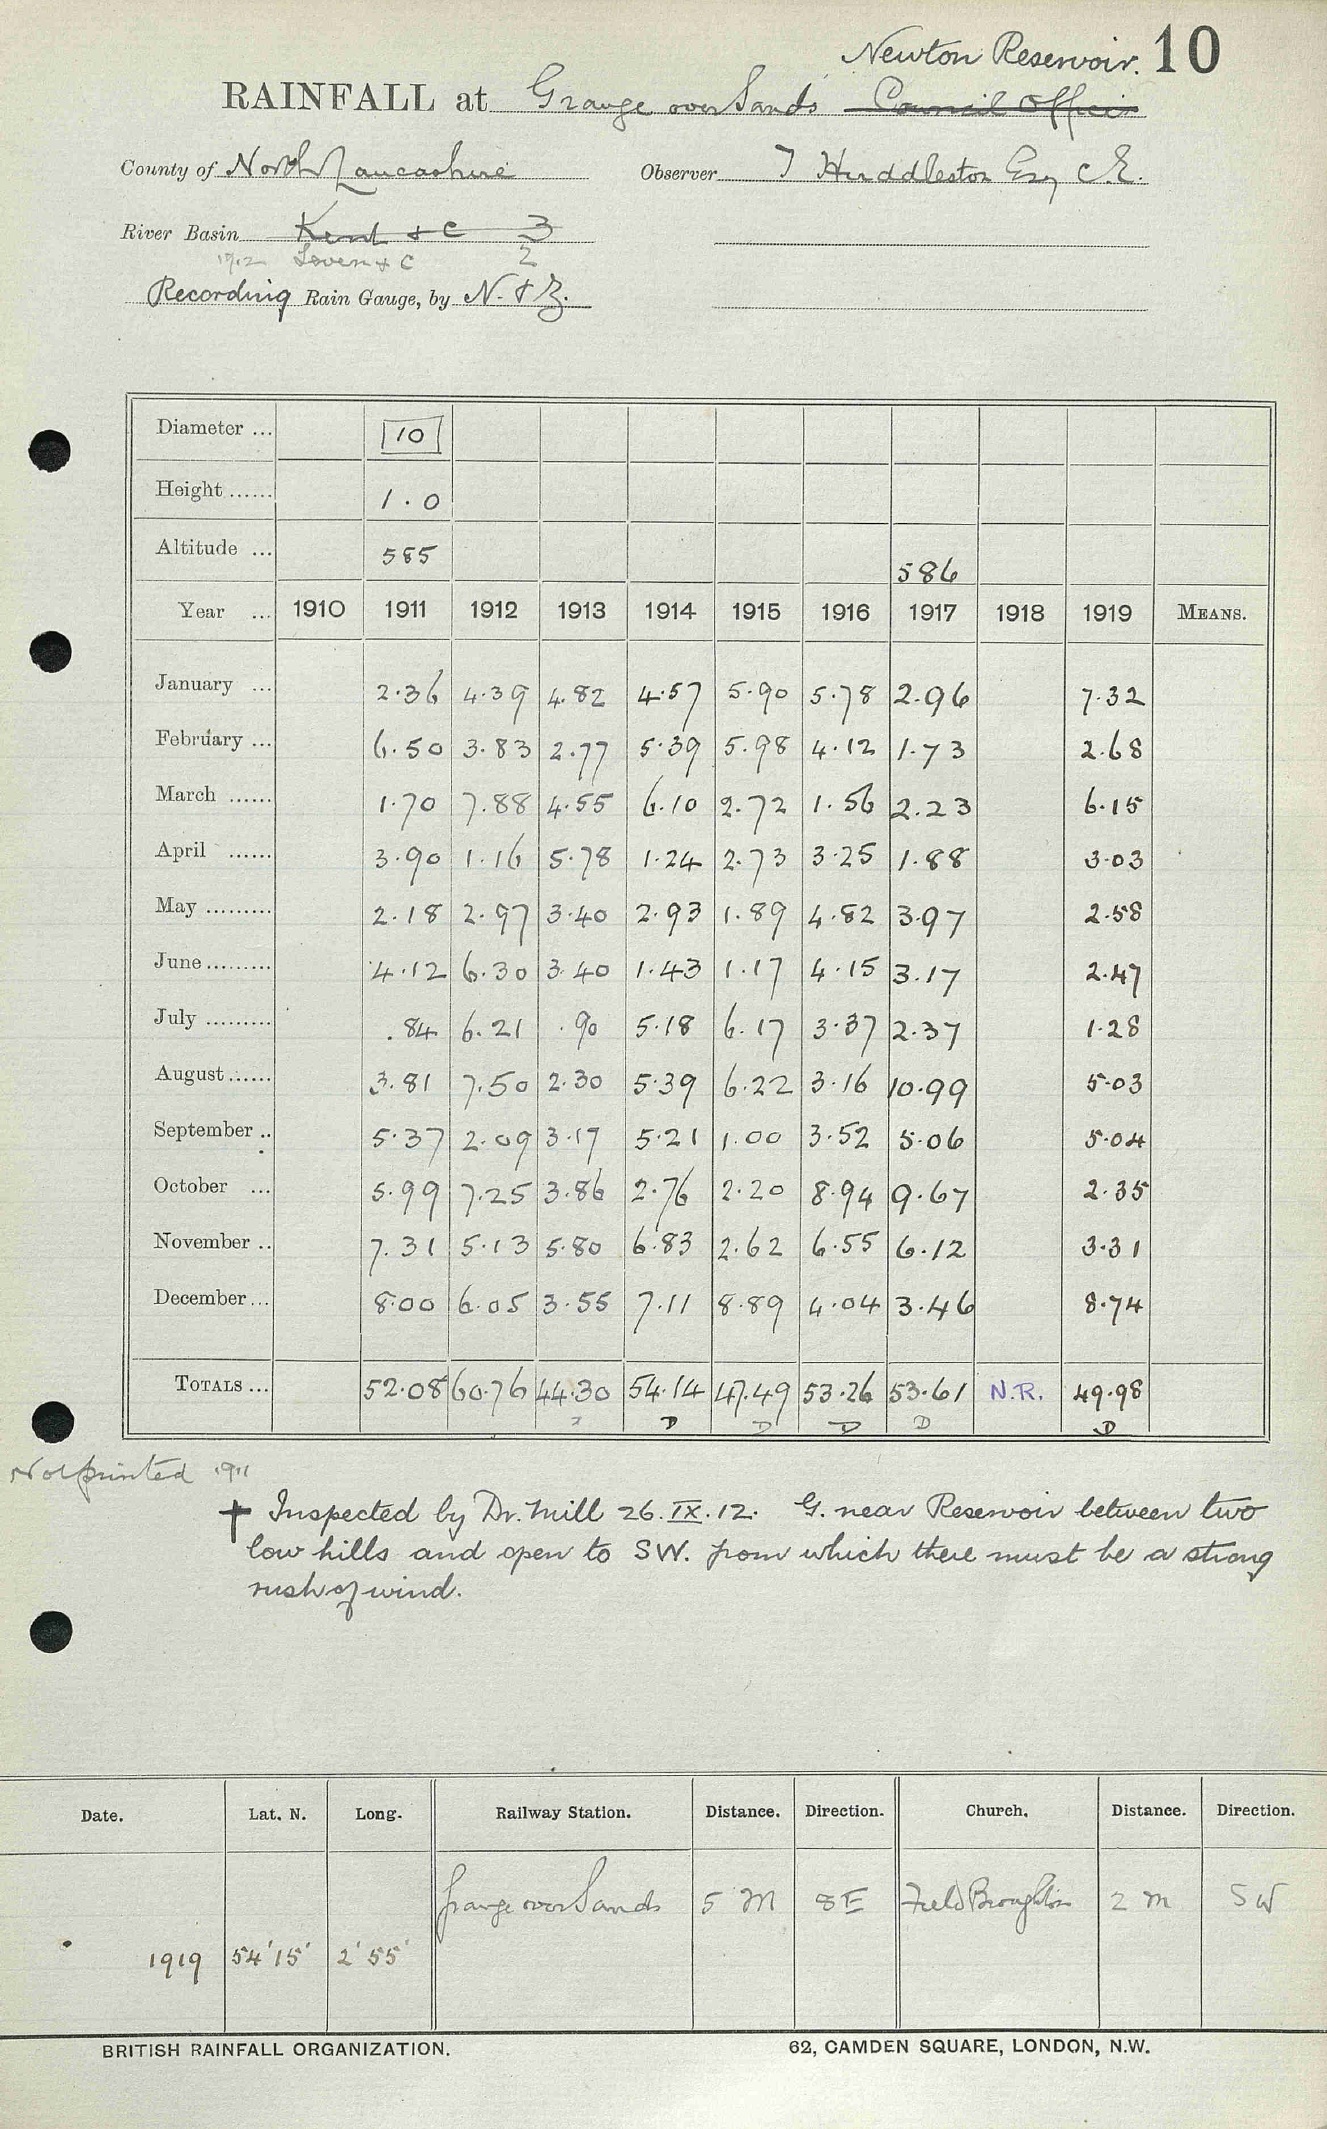 Newton Reservoir. 10
RAINFALL at Grange over Sands Council Offices
County of North Lancashire Observer T Huddleston Esq C.E.
River Basin Kent & C 3
1912 Leven & C 2
Recording Rain Gauge, by N. & Z.
Diameter ... 10
Height ...... 1.0
Altitude ... 585 586
Year ... 1910 1911 1912 1913 1914 1915 1916 1917 1918 1919 MEANS.
January ... 2.36 4.39 4.82 4.57 5.90 5.78 2.96 7.32
February ... 6.50 3.83 2.77 5.39 5.98 4.12 1.73 2.68
March ...... 1.70 7.88 4.55 6.10 2.72 1.56 2.23 6.15
April ...... 3.90 1.16 5.78 1.24 2.73 3.25 1.88 3.03
May ......... 2.18 2.97 3.40 2.93 1.89 4.82 3.97 2.58
June ......... 4.12 6.30 3.40 1.43 1.17 4.15 3.17 2.47
July ......... .84 6.21 .90 5.18 6.17 3.37 2.37 1.28
August ...... 3.81 7.50 2.30 5.39 6.22 3.16 10.99 5.03
September .. 5.37 2.09 3.17 5.21 1.00 3.52 5.06 5.04
October ... 5.99 7.25 3.86 2.76 2.20 8.94 9.67 2.35
November .. 7.31 5.13 5.80 6.83 2.62 6.55 6.12 3.31
December ... 8.00 6.05 3.55 7.11 8.89 4.04 3.46 8.74
TOTALS ... 52.08 60.76 44.30 54.14 47.49 53.26 53.61 N.R. 49.98
D D D D D
Not printed 1911
† Inspected by Dr. Mill 26.IX.12. G. near Reservoir between two
low hills and open to SW. from which there must be a strong
rush of wind.
Date. Lat. N. Long. Railway Station. Distance. Direction. Church. Distance. Direction.
Grange over Sands 5 M SE Field Broughton 2 m SW
1919 54°15' 2°55'
BRITISH RAINFALL ORGANIZATION. 62, CAMDEN SQUARE, LONDON, N.W.